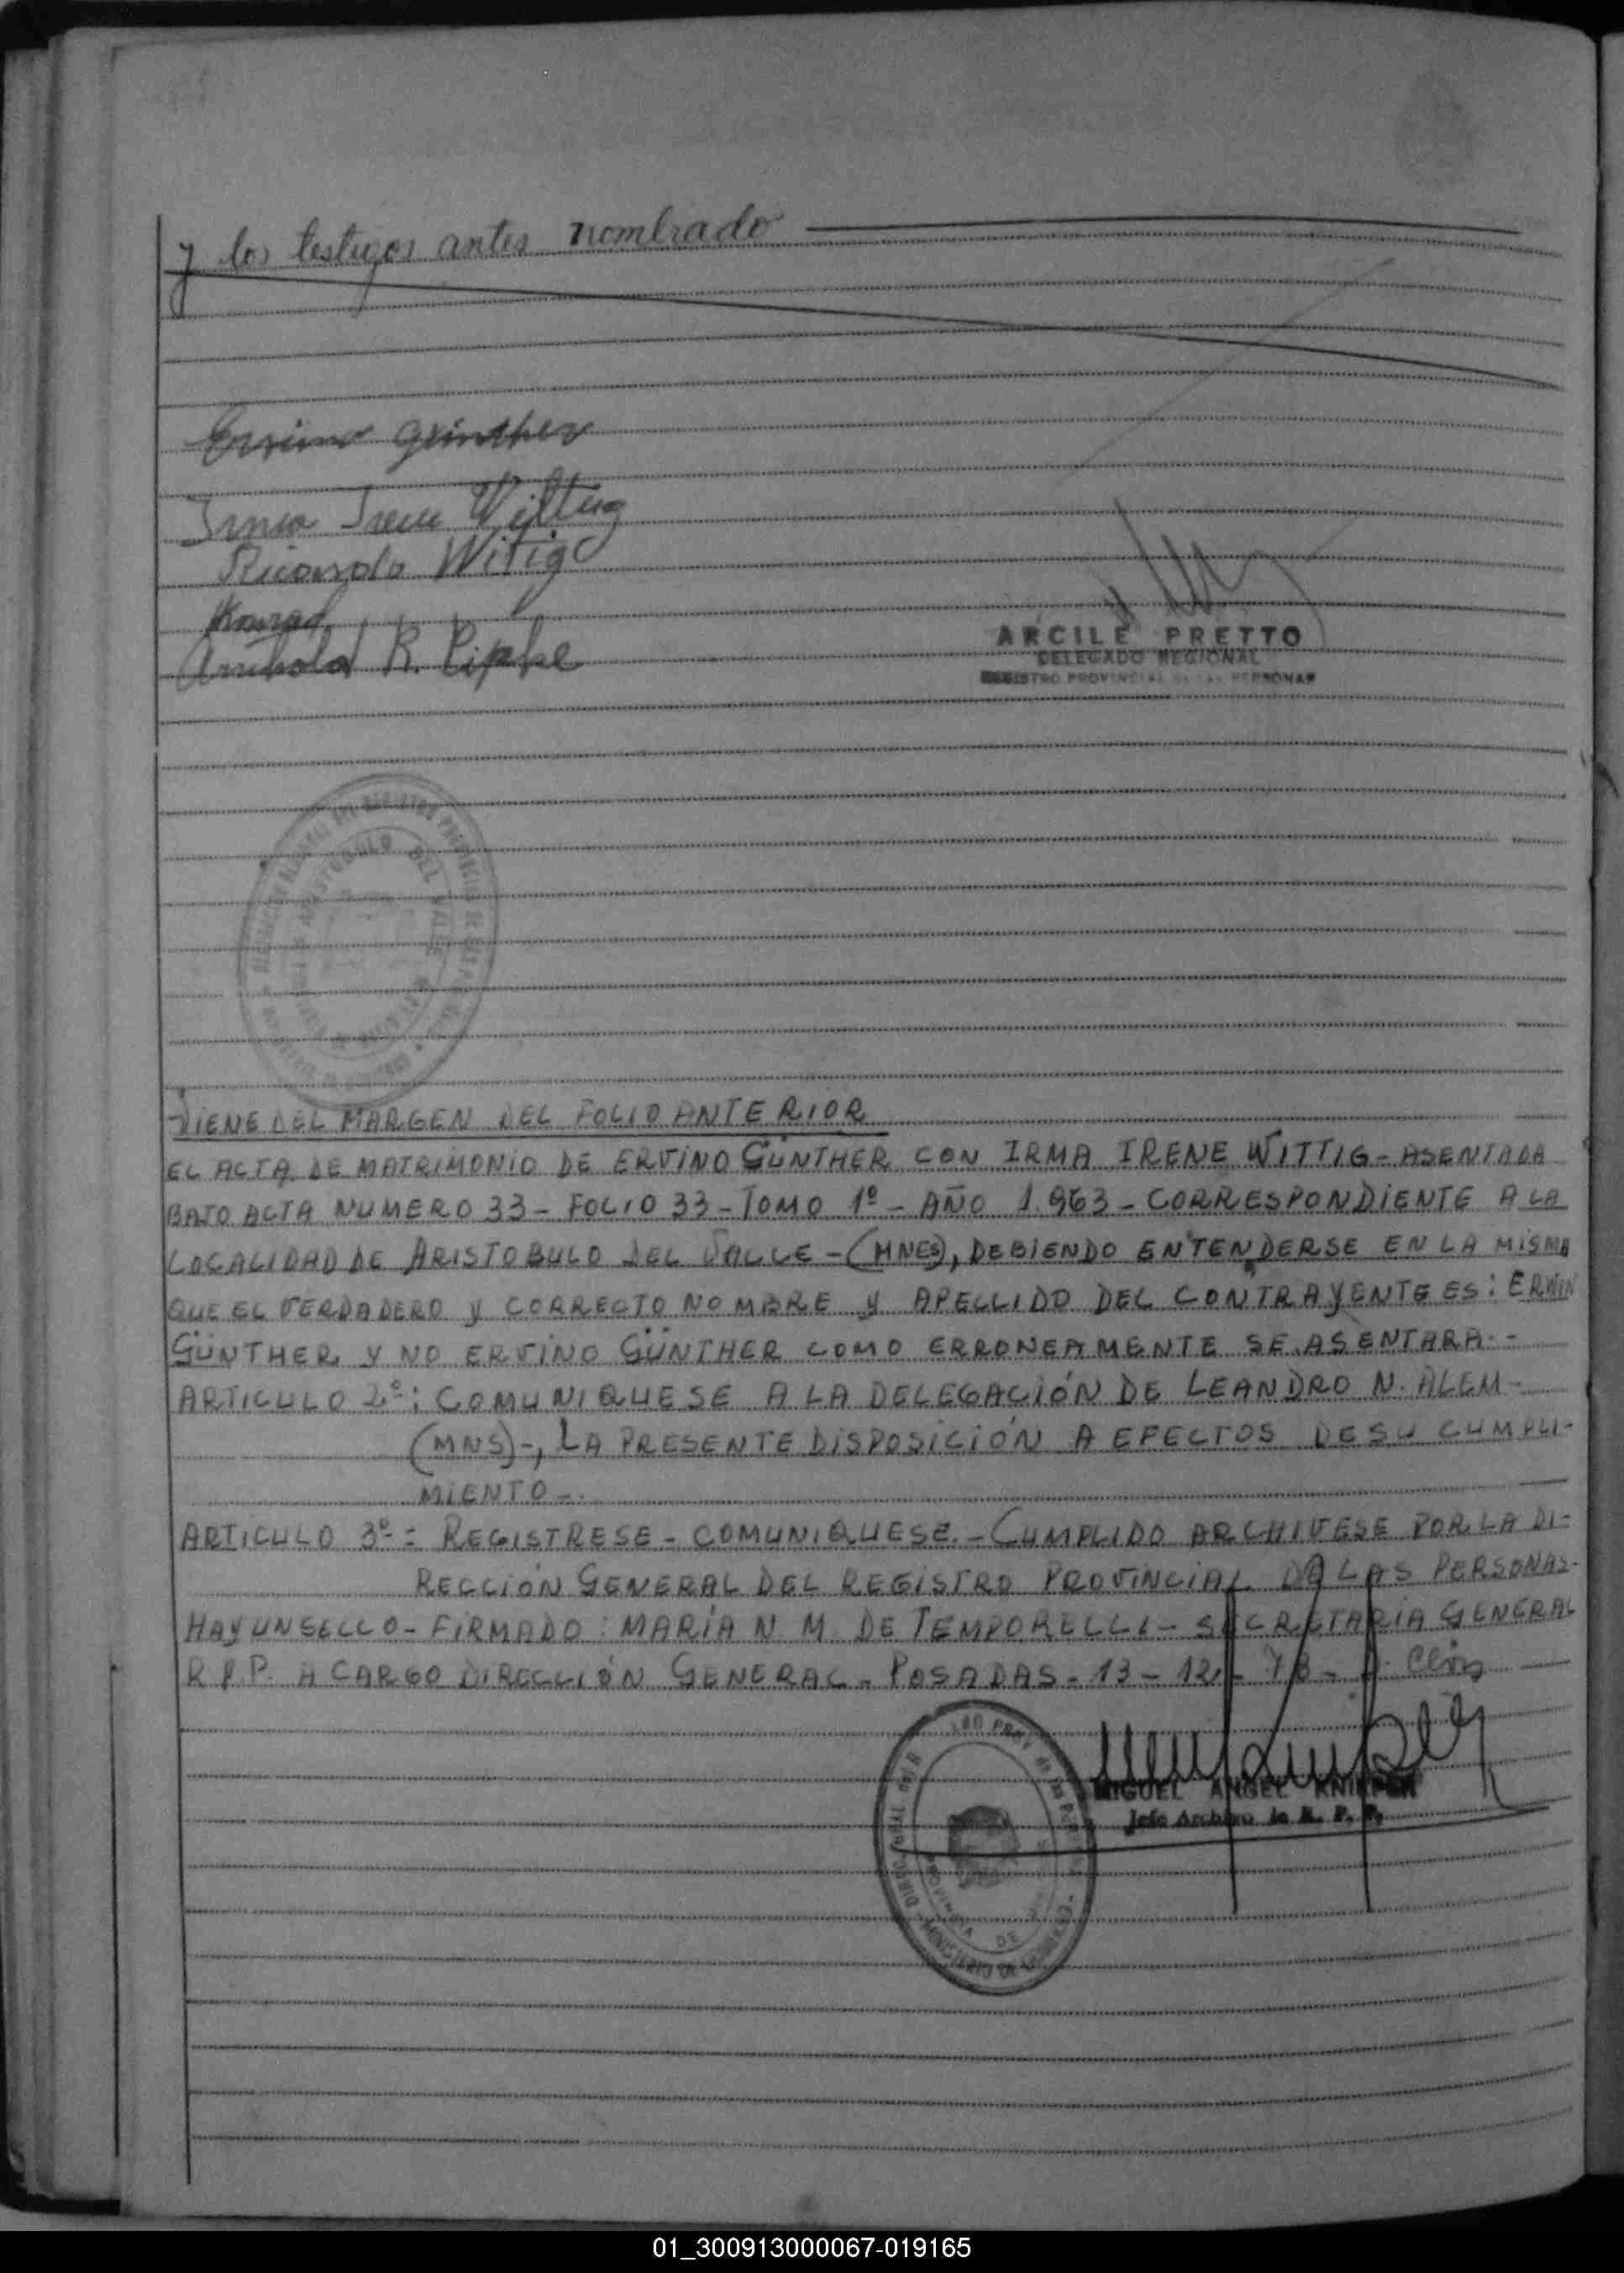 y los testigos antes nombrado
Ervino Günther
Irma Irene Wittig
Ricardo Witig
Konrad
R. Pipke
ARCILE PRETTO
DELEGADO REGIONAL
REGISTRO PROVINCIAL DE LAS PERSONAS
ARISTOBULO DEL VALLE
VIENE DEL MARGEN DEL FOLIO ANTERIOR
EL ACTA DE MATRIMONIO DE ERVINO GÜNTHER CON IRMA IRENE WITTIG - ASENTADA
BAJO ACTA NUMERO 33 - FOLIO 33 - TOMO 1º - AÑO 1.963 - CORRESPONDIENTE A LA
LOCALIDAD DE ARISTOBULO DEL VALLE - (MNES), DEBIENDO ENTENDERSE EN LA MISMA
QUE EL VERDADERO Y CORRECTO NOMBRE Y APELLIDO DEL CONTRAYENTE ES: ERWIN
GÜNTHER Y NO ERVINO GÜNTHER COMO ERRONEAMENTE SE ASENTARA.-
ARTICULO 2º: COMUNIQUESE A LA DELEGACIÓN DE LEANDRO N. ALEM-
(MNS)-, LA PRESENTE DISPOSICIÓN A EFECTOS DE SU CUMPLI-
MIENTO-.
ARTICULO 3º: REGISTRESE - COMUNIQUESE.- CUMPLIDO ARCHIVESE POR LA DI-
RECCIÓN GENERAL DEL REGISTRO PROVINCIAL DE LAS PERSONAS-
HAY UN SELLO - FIRMADO: MARÍA N. M. DE TEMPORELLI - SECRETARÍA GENERAL
R.P.P. A CARGO DIRECCIÓN GENERAL - POSADAS - 13 - 12 - 78 -
MIGUEL ANGEL KNIPPER
Jefe Archivo de R. P. P.
01_300913000067-019165